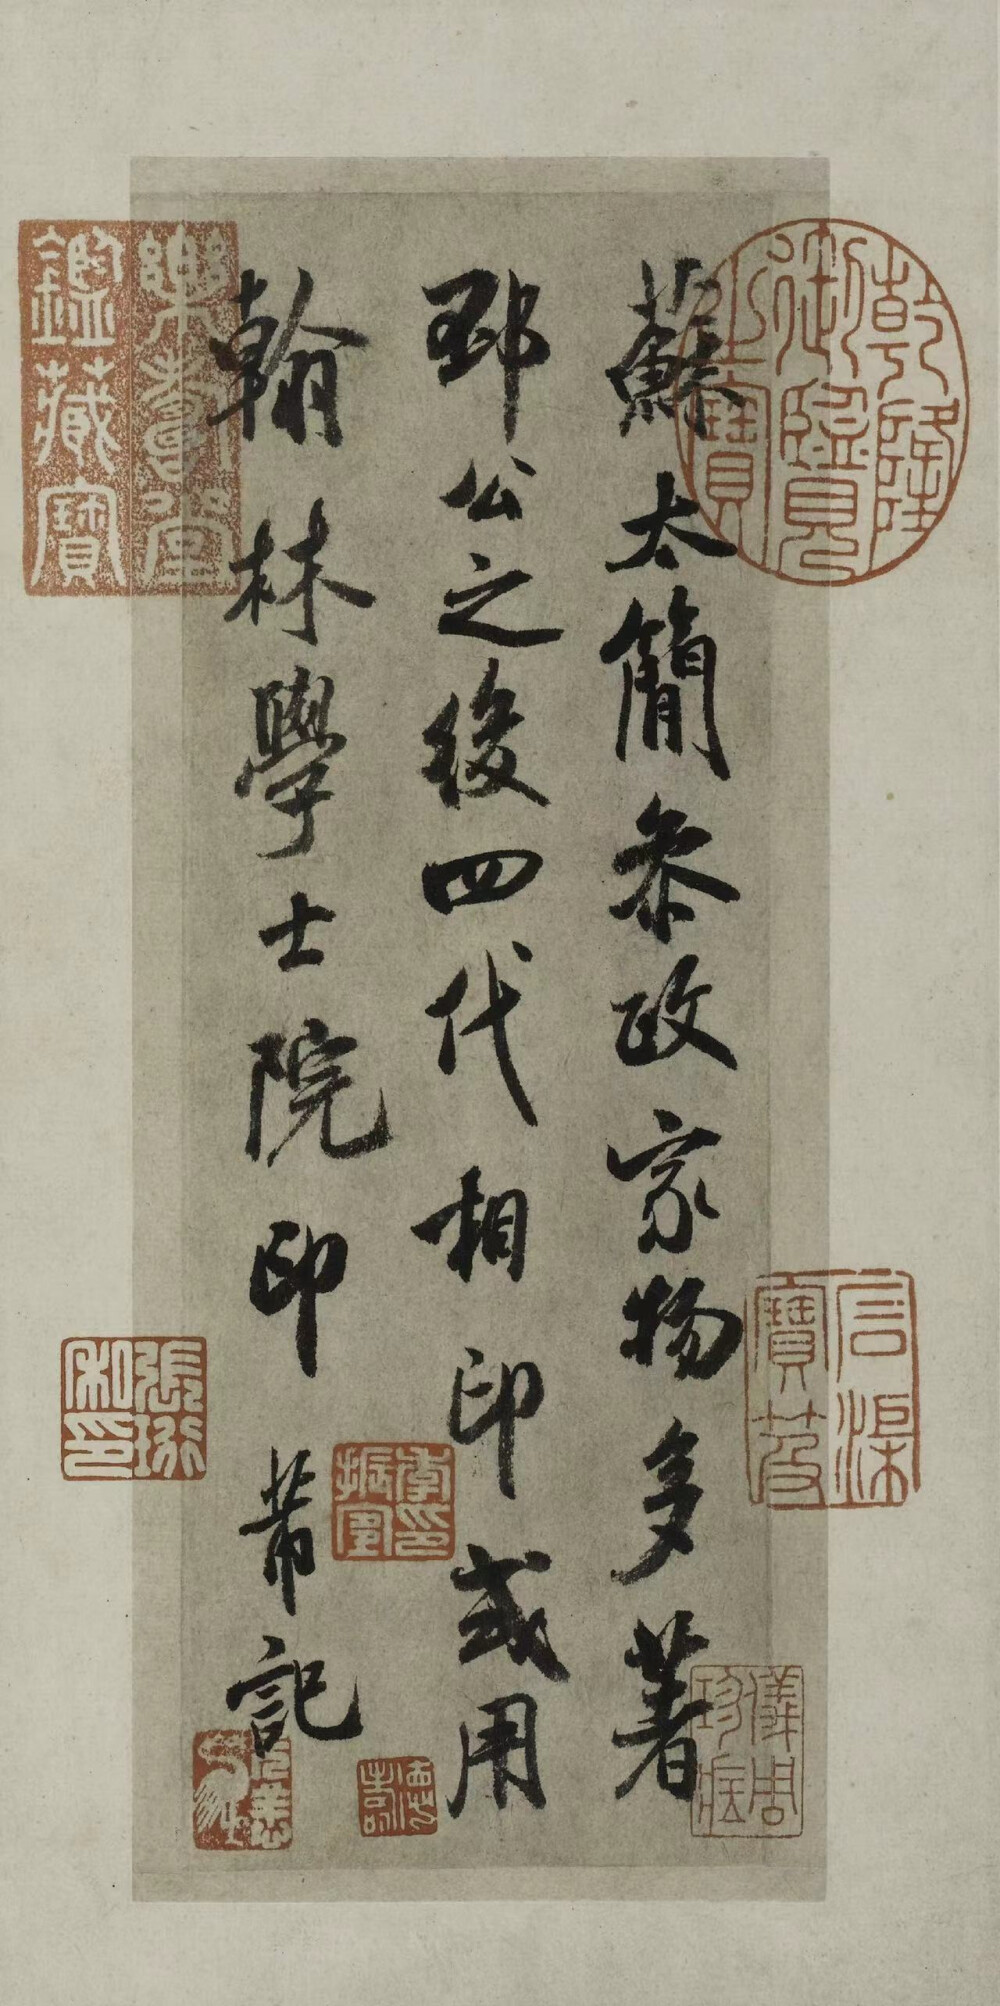 蘇太簡叅政家物多著
邳公之後四代相印或用
翰林學士院印芾記
乾隆
御覽
之寶
樂善堂
鑑藏寶
信渠
寶笈
張珩
私印
儀周
珍藏